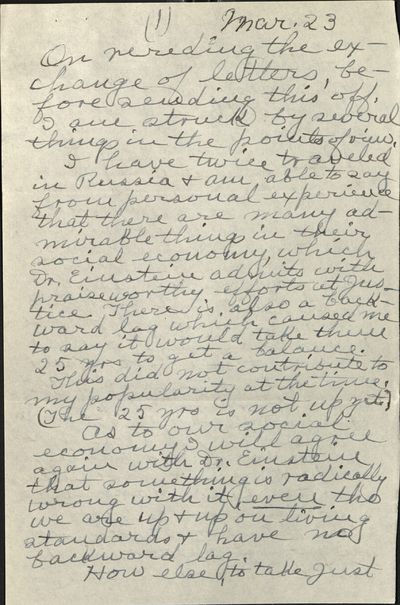 (1) Mar. 23
On rereding the ex-
change of letters, be-
fore sending this off,
I am struck by several
things in the points of view.
I have twice traveled
in Russia & am able to say
from personal experience
that there are many ad-
mirable things in their
social economy, which
Dr. Einstein admits with
praiseworthy efforts at jus-
tice. There is also a back-
ward lag which caused me
to say it would take them
25 yrs to get a balance.
This did not contribute to
my popularity at the time.
(The 25 yrs is not up yet.)
As to our social
economy I will agree
again with Dr. Einstein
that something is radically
wrong with it, even tho
we are up & up on living
standards & have no
backward lag.
How else, to take just